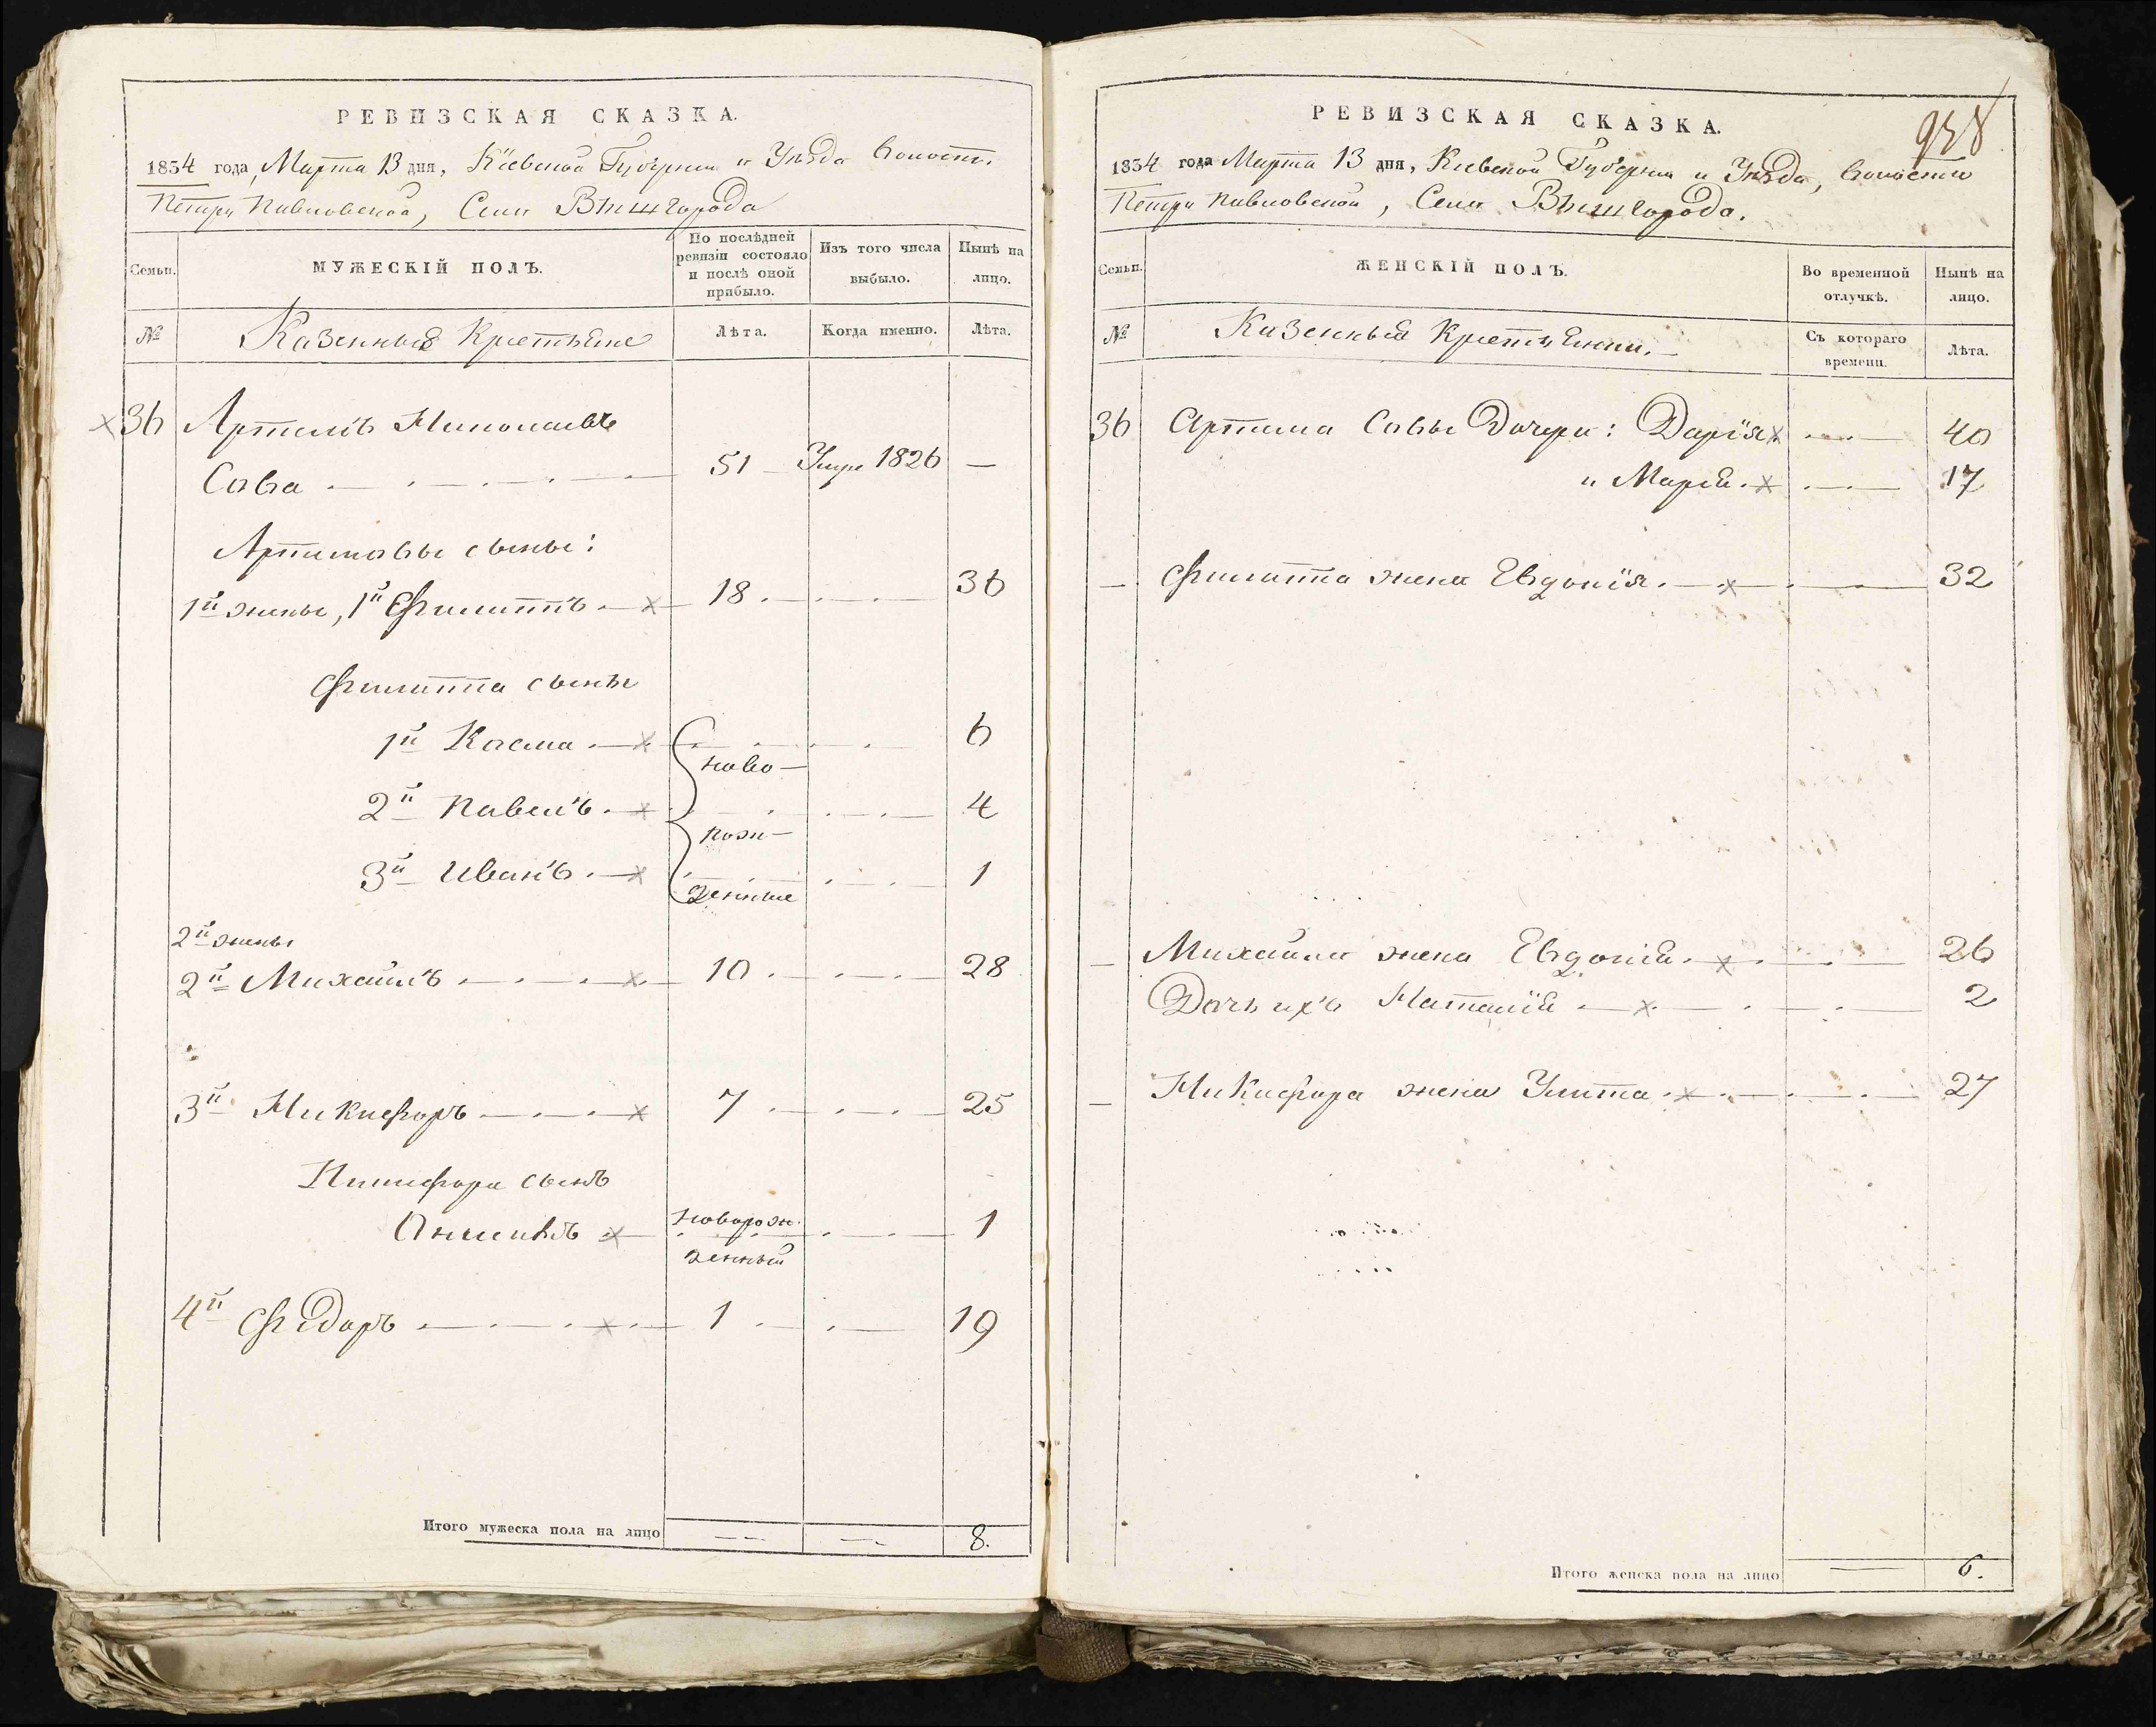 РЕВИЗСКАЯ СКАЗКА.
1834 года, Марта 13 дня, Кіевской Губерніи и Уѣзда Волости
Петро Павловской, Села Вышгорода
Семьи.
МУЖЕСКІЙ ПОЛЪ.
По послѣдней ревизіи состояло и послѣ оной прибыло.
Изъ того числа выбыло.
Нынѣ на лицо.
№
Казенные Крестьяне
Лѣта.
Когда именно.
Лѣта.
36 Артемъ Николаевъ
Сова 51 Умре 1826 —
Артемовы сыны:
1й жены, 1й Филиппъ 18 36
Филиппа сыны
1й Косма 6
ново-
2й Павелъ 4
рож-
3й Иванъ 1
денные
2й жены
2й Михаилъ 10 28
3й Никифоръ 7 25
Никифора сынъ
новорож-
1
денный
4й Федоръ 1 19
Итого мужеска пола на лицо 8.
РЕВИЗСКАЯ СКАЗКА.
1834 года Марта 13 дня, Кіевской Губерніи и Уѣзда, Волости
Петро Павловской, Села Вышгорода.
Семьи.
ЖЕНСКІЙ ПОЛЪ.
Во временной отлучкѣ.
Нынѣ на лицо.
№
Казенныя Крестьянки.
Съ котораго времени.
Лѣта.
36 Артема Совы Дочери: Дарія 40
и Марія 17
— Филиппа жена Евдокія 32
— Михаила жена Евдокія 26
Дочь ихъ Наталія 2
— Никифора жена Улита 27
Итого женска пола на лицо 6.